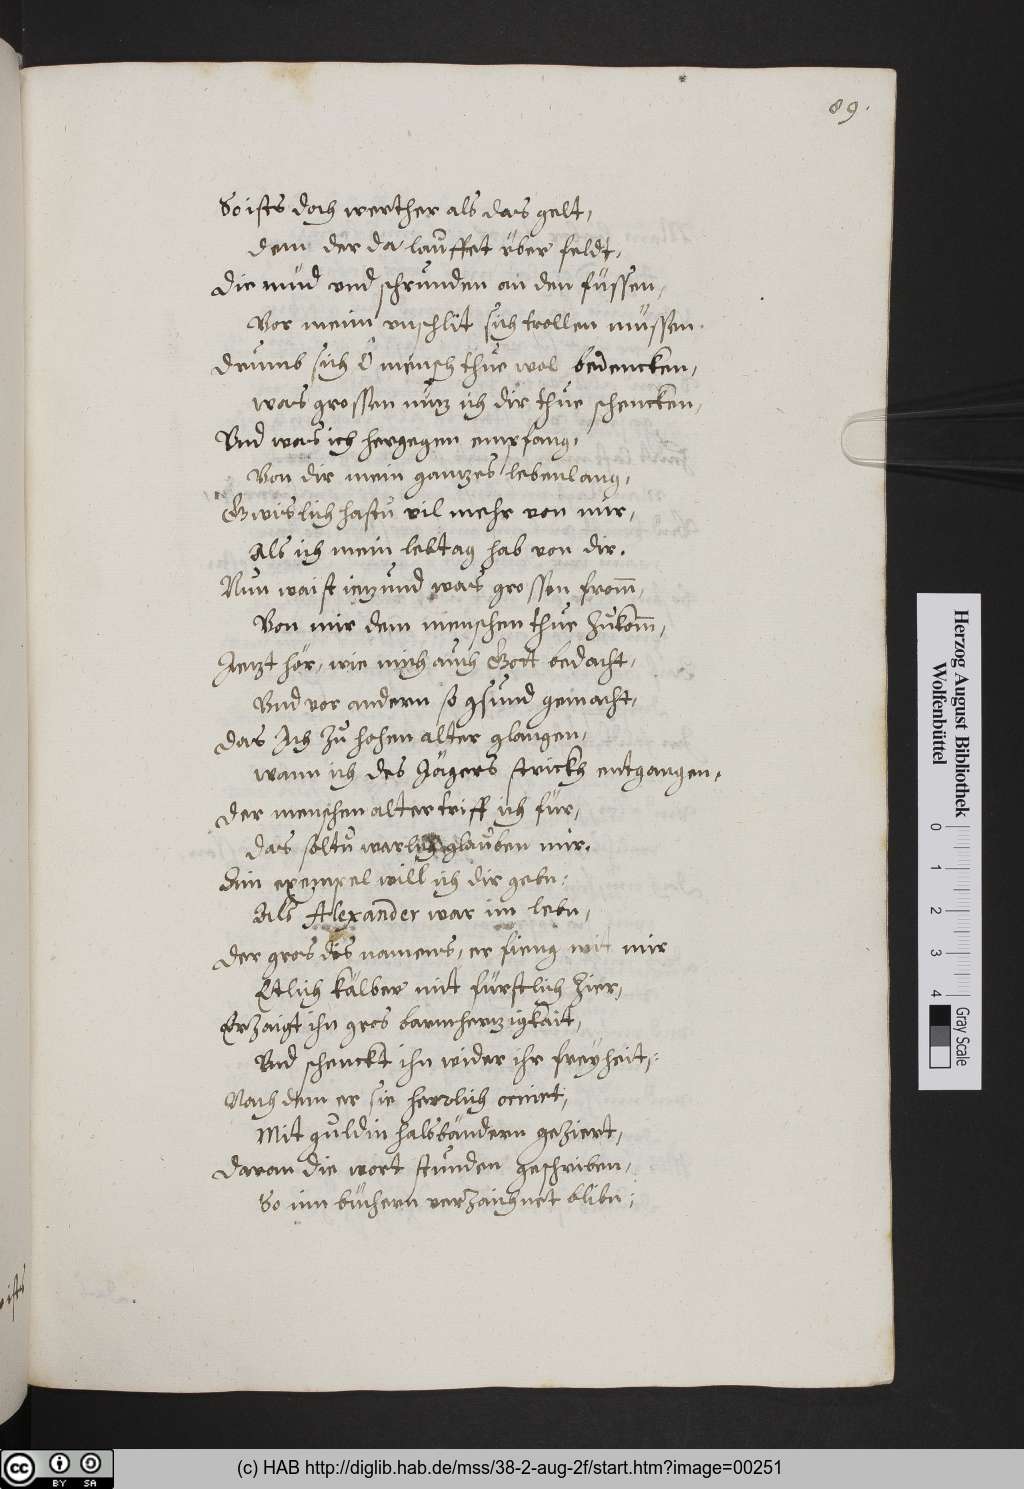 89.
So ists doch werther als das gelt,
dem der da lauffet über feldt,
Die müd vnd schrunden an den füssen,
Vor meim vnschlit sich trollen müssen.
Drumb sich ô mensch thue wol bedencken,
was grossen nutz ich dir thue schencken,
Vnd was ich hergegen empfang,
Von dir mein gantzes lebenlang,
Gwislich hastu vil mehr von mir,
Als ich mein lebtag hab von dir.
Nun waist ietzund was grossen from̄,
Von mir dem menschen thue zukom̄,
Jetzt hör, wie mich auch Gott bedacht,
Vnd vor andern so gsund gemacht,
Das Ich zu hohen alter glangen,
wann ich des Jägers strickh entgangen,
Der menschen alter triff ich für,
das soltu warlich glauben mir.
Ain exempel will ich dir gebn:
Als Alexander war im lebn,
Der gros dis namens, er fieng mit mir
Etlich kälber mit fürstlich zier,
Erzaigt ihn gros barmhertzigkait,
Vnd schenckt ihn wider ihr freyheit,:
Nach dem er sie herrlich ornirt,
Mit guldin halsbändern geziert,
Daran die wort stunden geschriben,
So inn büchern verzaichnet blibn:
ists
Herzog August Bibliothek
Wolfenbüttel
0 1 2 3 4
Gray Scale
cc BY SA
(c) HAB http://diglib.hab.de/mss/38-2-aug-2f/start.htm?image=00251